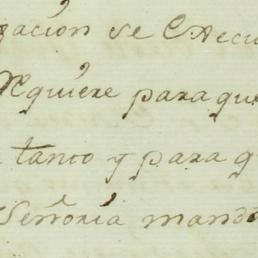 gación se Execu
Requiere para que
tanto y para q
Señoria mand